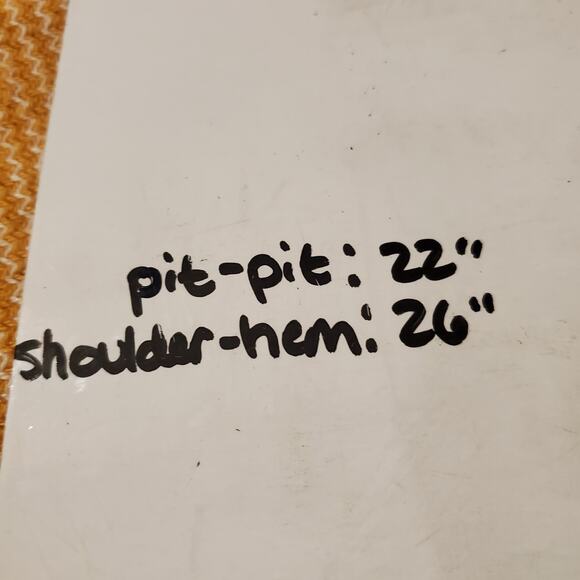 pit-pit: 22"
shoulder-hem: 26"